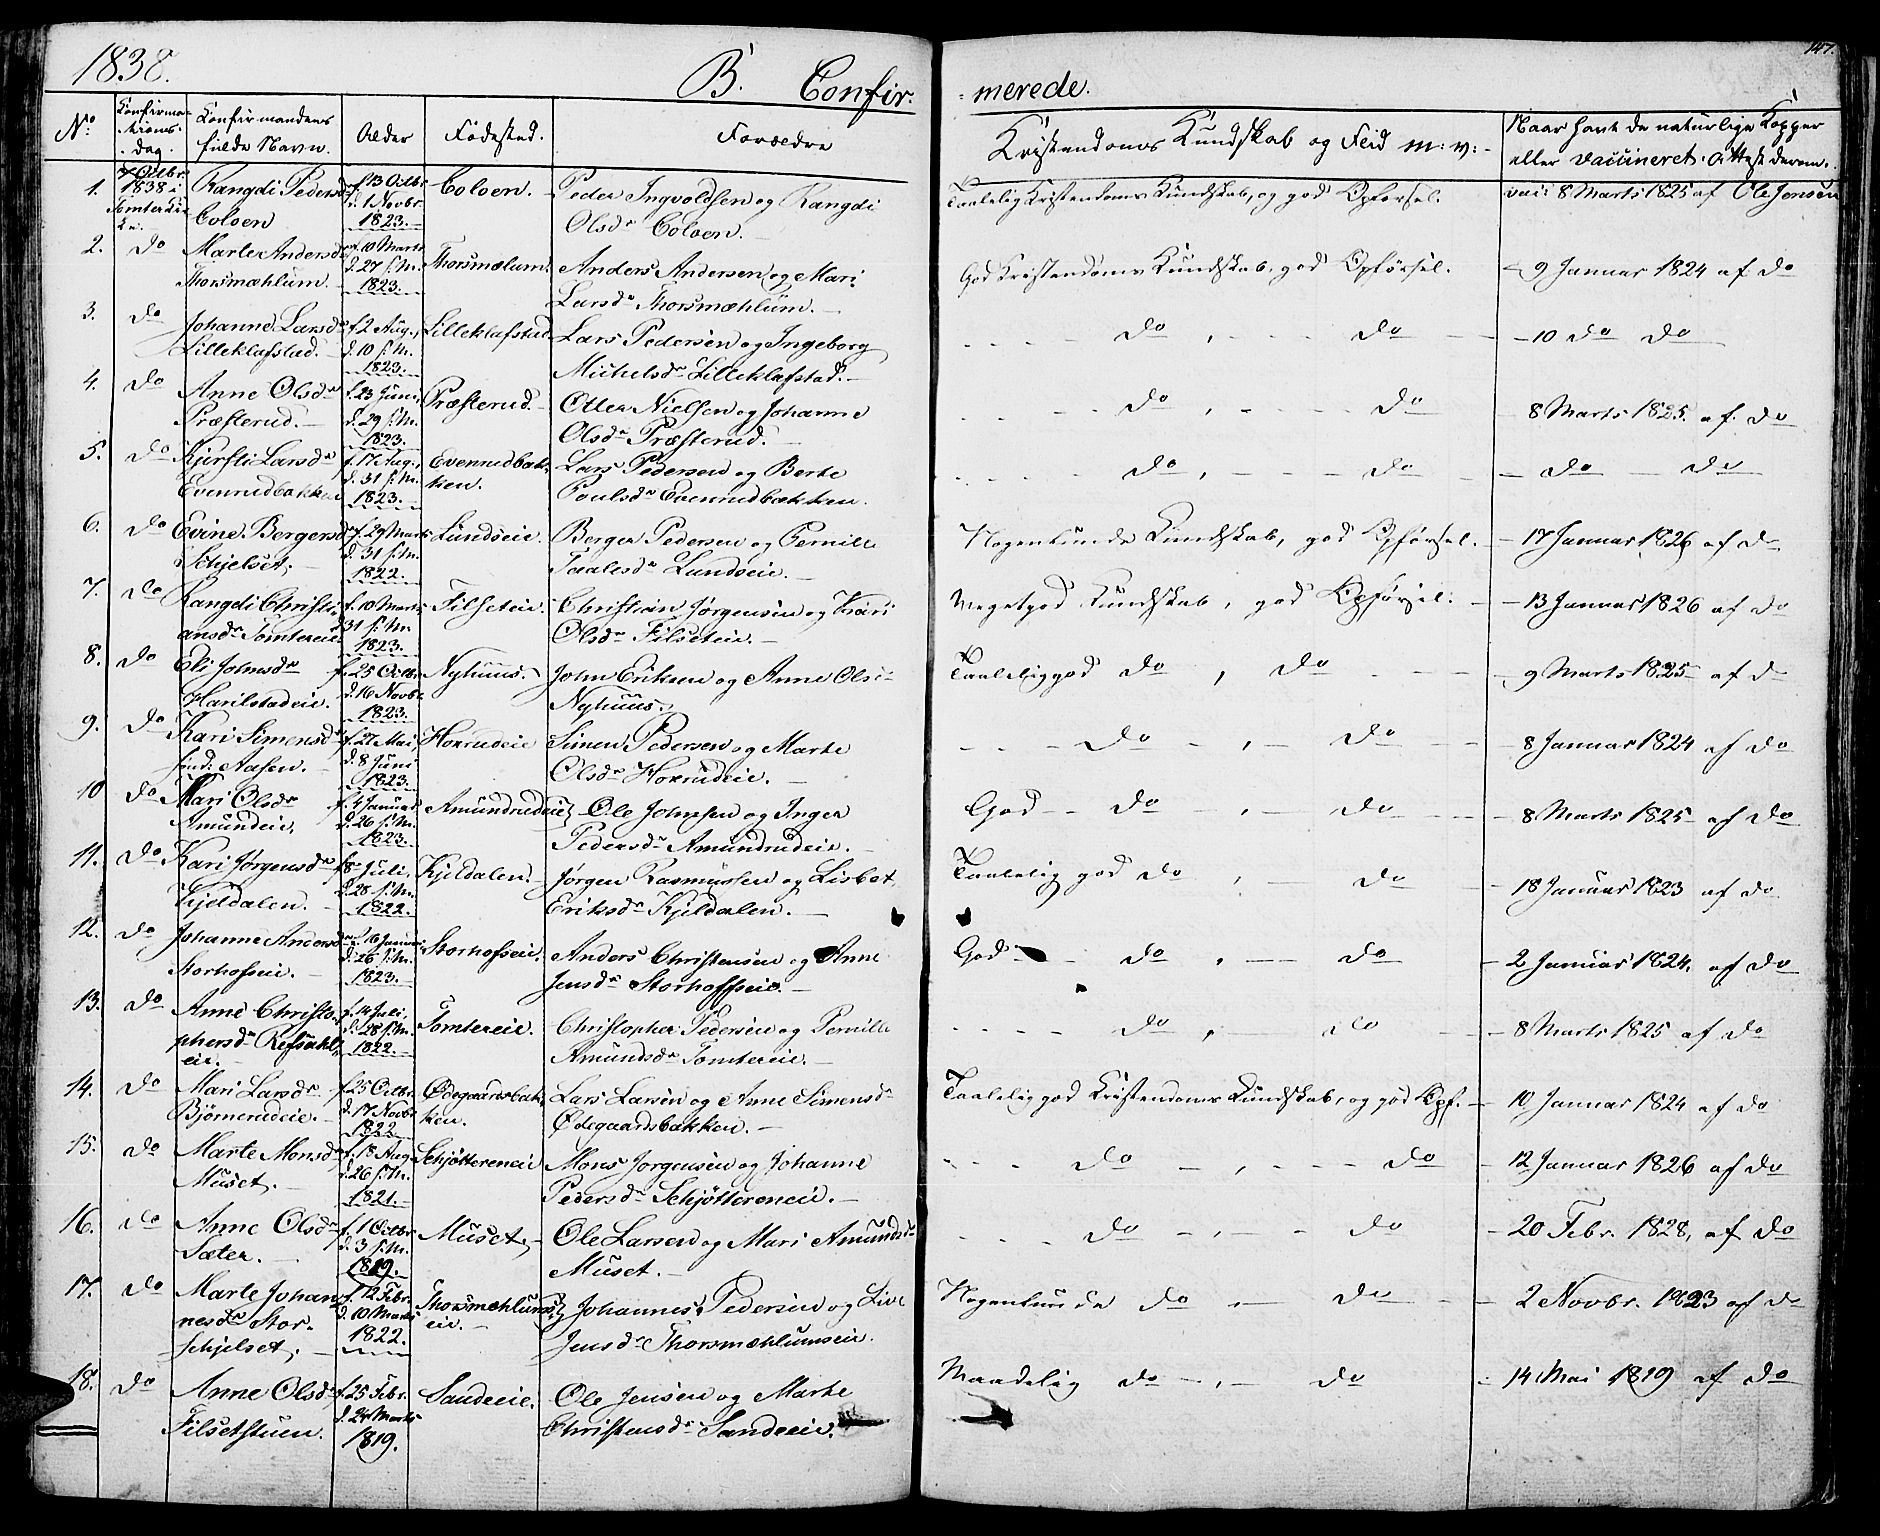 1838.
B. Confir-
-merede.
147.
No
Konfirma-
tions-
dag.
Konfirmandens
fulde Navn.
Alder
Fødested.
Forældre
Kristendoms Kundskab og Flid m: v:
Naar havt de naturlige Kopper
eller vaccineret. Attest derom.
1. 7 Octbr 1838 i Tomter
Rangdi Pedersdr Coloen
f. 13 Octbr d. 1 Novbr 1823.
Coloen.
Peder Ingvoldsen og Rangdi
Olsdr Coloen.
Taalelig Kristendoms Kundskab, og god Opførsel.
vac: 8 Marts 1825 af Ole Jensen
2. do
Marte Andersdr Thorsmæhlum.
f. 10 Marts d. 27 s. M. 1823.
Thorsmælum.
Anders Andersen og Mari
Larsdr Thorsmæhlum.
God Kristendoms Kundskab, god Opførsel.
9 Januar 1824 af do
3. do
Johanne Larsdr Lilleklafstad.
f. 2 Aug., d. 10 s. M. 1823.
Lilleklafstad
Lars Pedersen og Ingeborg
Michelsdr Lilleklafstad.
do, do
10 do do
4. do
Anne Olsdr Præsterud.
f. 23 Juni, d. 29 s. M. 1823.
Præsterud.
Otter Nielsen og Johanne
Olsdr Præsterud.
do, do
8 Marts 1825. af do
5. do
Kjersti Larsdr Evenrudbakken
f. 17 Aug., d. 31 s. M. 1823.
Evenrudbakken.
Lars Pedersen og Berte
Poulsdr Evenrudbakken.
do, do
do do
6. do
Evine Bergersdr Schjelset.
f. 29 Marts d. 31 s. M. 1822.
Lundseie.
Berger Pedersen og Pernille
Taalesdr Lundseie.
Nogenlunde Kundskab, god Opførsel.
17 Januar 1826 af do
7. do
Rangdi Christiansdr Tomtereie
f. 10 Marts 31 s. M. 1823.
Filseteie.
Christian Jørgensen og Kari
Olsdr Filseteie.
Megetgod Kundskab, god Opførsel.
13 Januar 1826 af do
8. do
Eli Johnsdr Harilstadeie.
f. 25 Octbr d. 16 Novbr 1823.
Nyhuus.
John Eriksen og Anne Olsd
Nyhuus.
Taaleliggod do, do
9 Marts 1825 af do
9. do
Kari Simensdr Aasen.
f. 27 Mai d. 8 Juni 1823.
Hoxrudeie
Simen Pedersen og Marte
Olsdr Hoxrudeie.
do, do
8 Januar 1824 af do
10 do
Mari Olsdr Amundeie.
f. 4 Januar d. 26 s. M. 1823.
Amundrudeie
Ole Johnsen og Inger
Pedersdr Amundrudeie.
God do, do
8 Marts 1825 af do
11. do
Kari Jørgensdr Kjeldalen.
f. 8 Juli, d. 28 s. M. 1822.
Kjeldalen.
Jørgen Rasmussen og Lisbet
Eriksdr Kjeldalen.
Taalelig god do, do
18 Januar 1823 af do
12. do
Johanne Andersdr Storhofseie.
f. 16 Januar d. 26 s. M. 1823.
Storhofseie.
Anders Christensen og Anne
Jensdr Storhoffseie.
God do, do
2 Januar 1824. af do
13. do
Anne Christophersdr Refsahleie.
f. 14 Juli, d. 28 s. M. 1822.
Tomtereie.
Christopher Pedersen og Pernille
Amundsdr Tomtereie.
do, do
8 Marts 1825 af do
14. do
Mari Larsdr Bjørnerudeie.
f. 25 Octbr. d. 17 Novbr 1822.
Ødegaardsbakken.
Lars Larsen og Anne Simensdr
Ødegaardsbakken.
Taaleliggod Kristendoms Kundskab, og god Opf.
10 Januar 1824 af do
15. do
Marte Monsdr Muset.
f. 18 Aug. d. 26 s. M. 1821.
Schjøttereneie
Mons Jorgensen og Johanne
Pedersdr Schjøttereneie.
do, do
12 Januar 1826 af do
16. do
Anne Olsdr Sæter.
f. 1 Octbr d. 3 s. M. 1819.
Muset.
Ole Larsen og Mari Amundsdr
Muset.
do, do
20 Febr. 1828, af do
17. do
Marte Johannesdr Storschjelset.
f. 12 Febr. d. 10 Marts 1822.
Thorsmæhlumseie.
Johannes Pedersen og Live
Jensdr Thorsmæhlumseie.
Nogenlunde do, do
2 Novbr. 1823 af do
18. do
Anne Olsdr Filsetstuen.
f. 25 Febr. d. 24 Marts 1819.
Sandeeie.
Ole Jensen og Marte
Christensdr Sandeeie.
Maadelig do, do
14 Mai 1819 af do